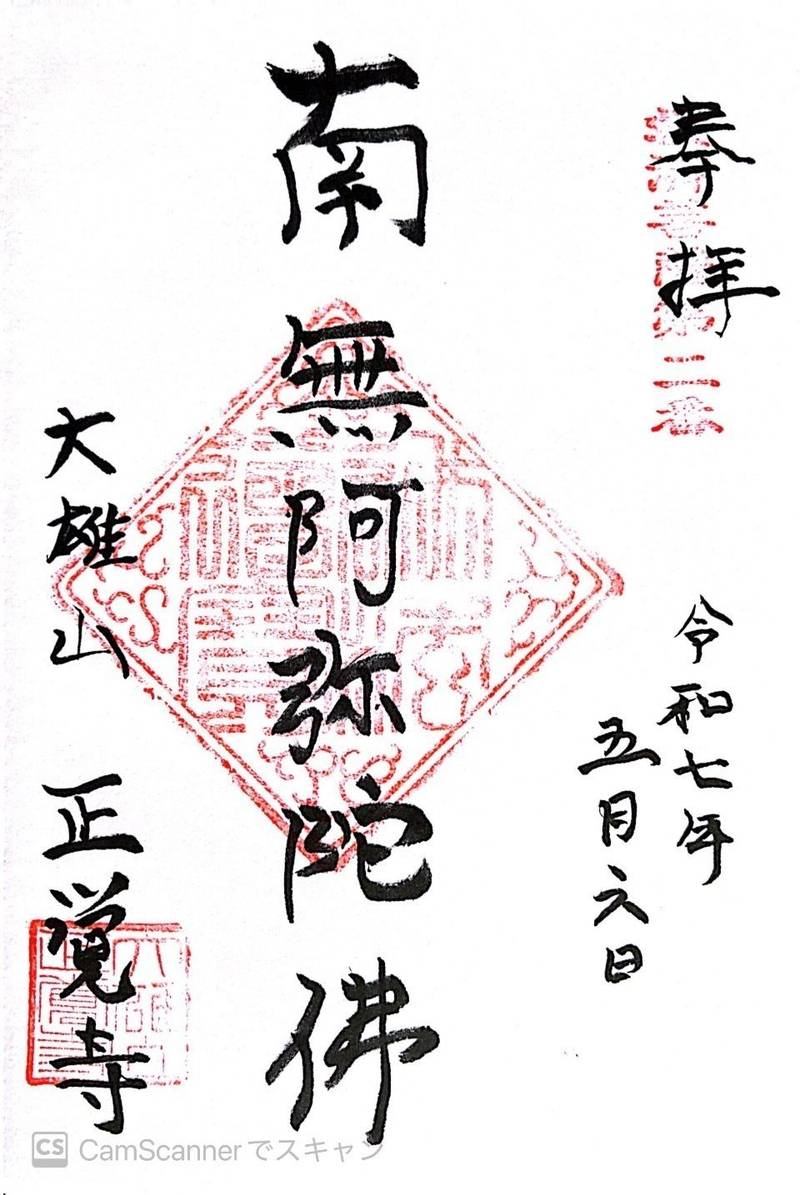 奉拝
二番
令和七年
五月六日
南無阿弥陀佛
大雄山
正覚寺
CS CamScannerでスキャン